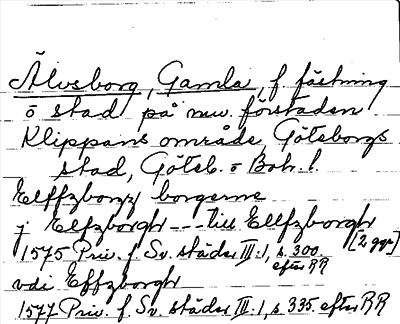 Älvsborg, Gamla, f fästning
o stad på nuv. förstaden
Klippans område, Göteborgs
stad, Göteb. o Boh. l.
Elffzborgz borgerne
j Elfzborgh --- till Ellfzborgh
1575 Priv. f Sv. städer III:1, s. 300 [2 ggr]
efter RR
vdi Effzborgh
1577 Priv. f Sv. städer III:1, s. 335 efter RR